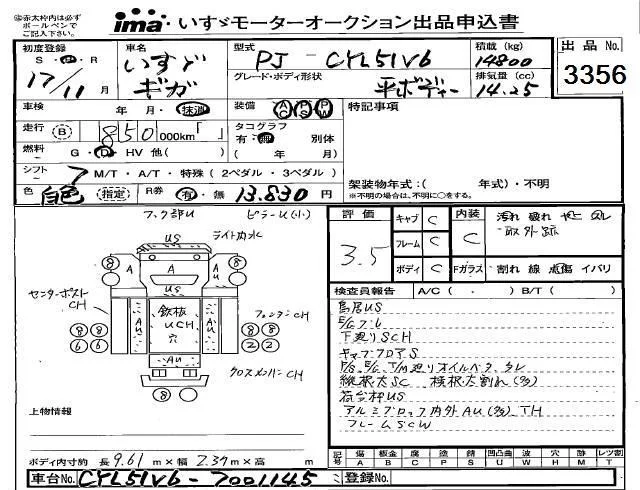 ◎赤太枠内は必ず
ボールペンで
ご記入下さい。
ima いすゞモーターオークション出品申込書
初度登録
S・H・R
17/11月
車名
いすゞ
ギガ
型式
PJ-CYL51V6
グレード・ボディ形状
平ボディー
積載 (kg)
14800
排気量 (cc)
14.25
出品 No.
3356
車検
年・月・抹消
装備 AC PS PW
特記事項
走行 B 850,000km「 」
タコグラフ
有・無 別体
( 年 月)
燃料
~ G・D・HV 他( )
シフト
~ 7 M/T・A/T・特殊(2ペダル・3ペダル)
架装物年式:( 年式)・不明
※不明の場合は、不明に○をする。
色 白色 (指定)
R券 有・無 13.830 円
フック部U ピラーU(小)
US
ライト内水
8 A A A 8
US
センターポスト
CH
AU 鉄板 UCH 穴 AU
フェンダーCH
8 8 8 8
6 6 6 6
AU
クロスメンバーCH
8
上物情報
ボディ内寸約 長 9.61 m×幅 2.39 m×高 m
評価
3.5
キャブ C
フレーム C
ボディ C
内装 C
汚れ 破れ
取外跡
Fガラス 割れ 線 点傷 イバリ
検査員報告 A/C( . ) B/T( )
鳥居US
E/Gブレ
下廻りSCH
キャブフロアS
P/S, E/G, T/M廻りオイルベタ、タレ
縦根太SC 横根太割れ(多)
荷台枠US
アルミブロック内外AU(多)、TH
フレームSCW
記号 傷 板金 腐 塗 錆 凹凸曲 波 穴 歪 欠 レツ割
A B C P S U W H M X T
車台No. CYL51V6-7001145 登録No.